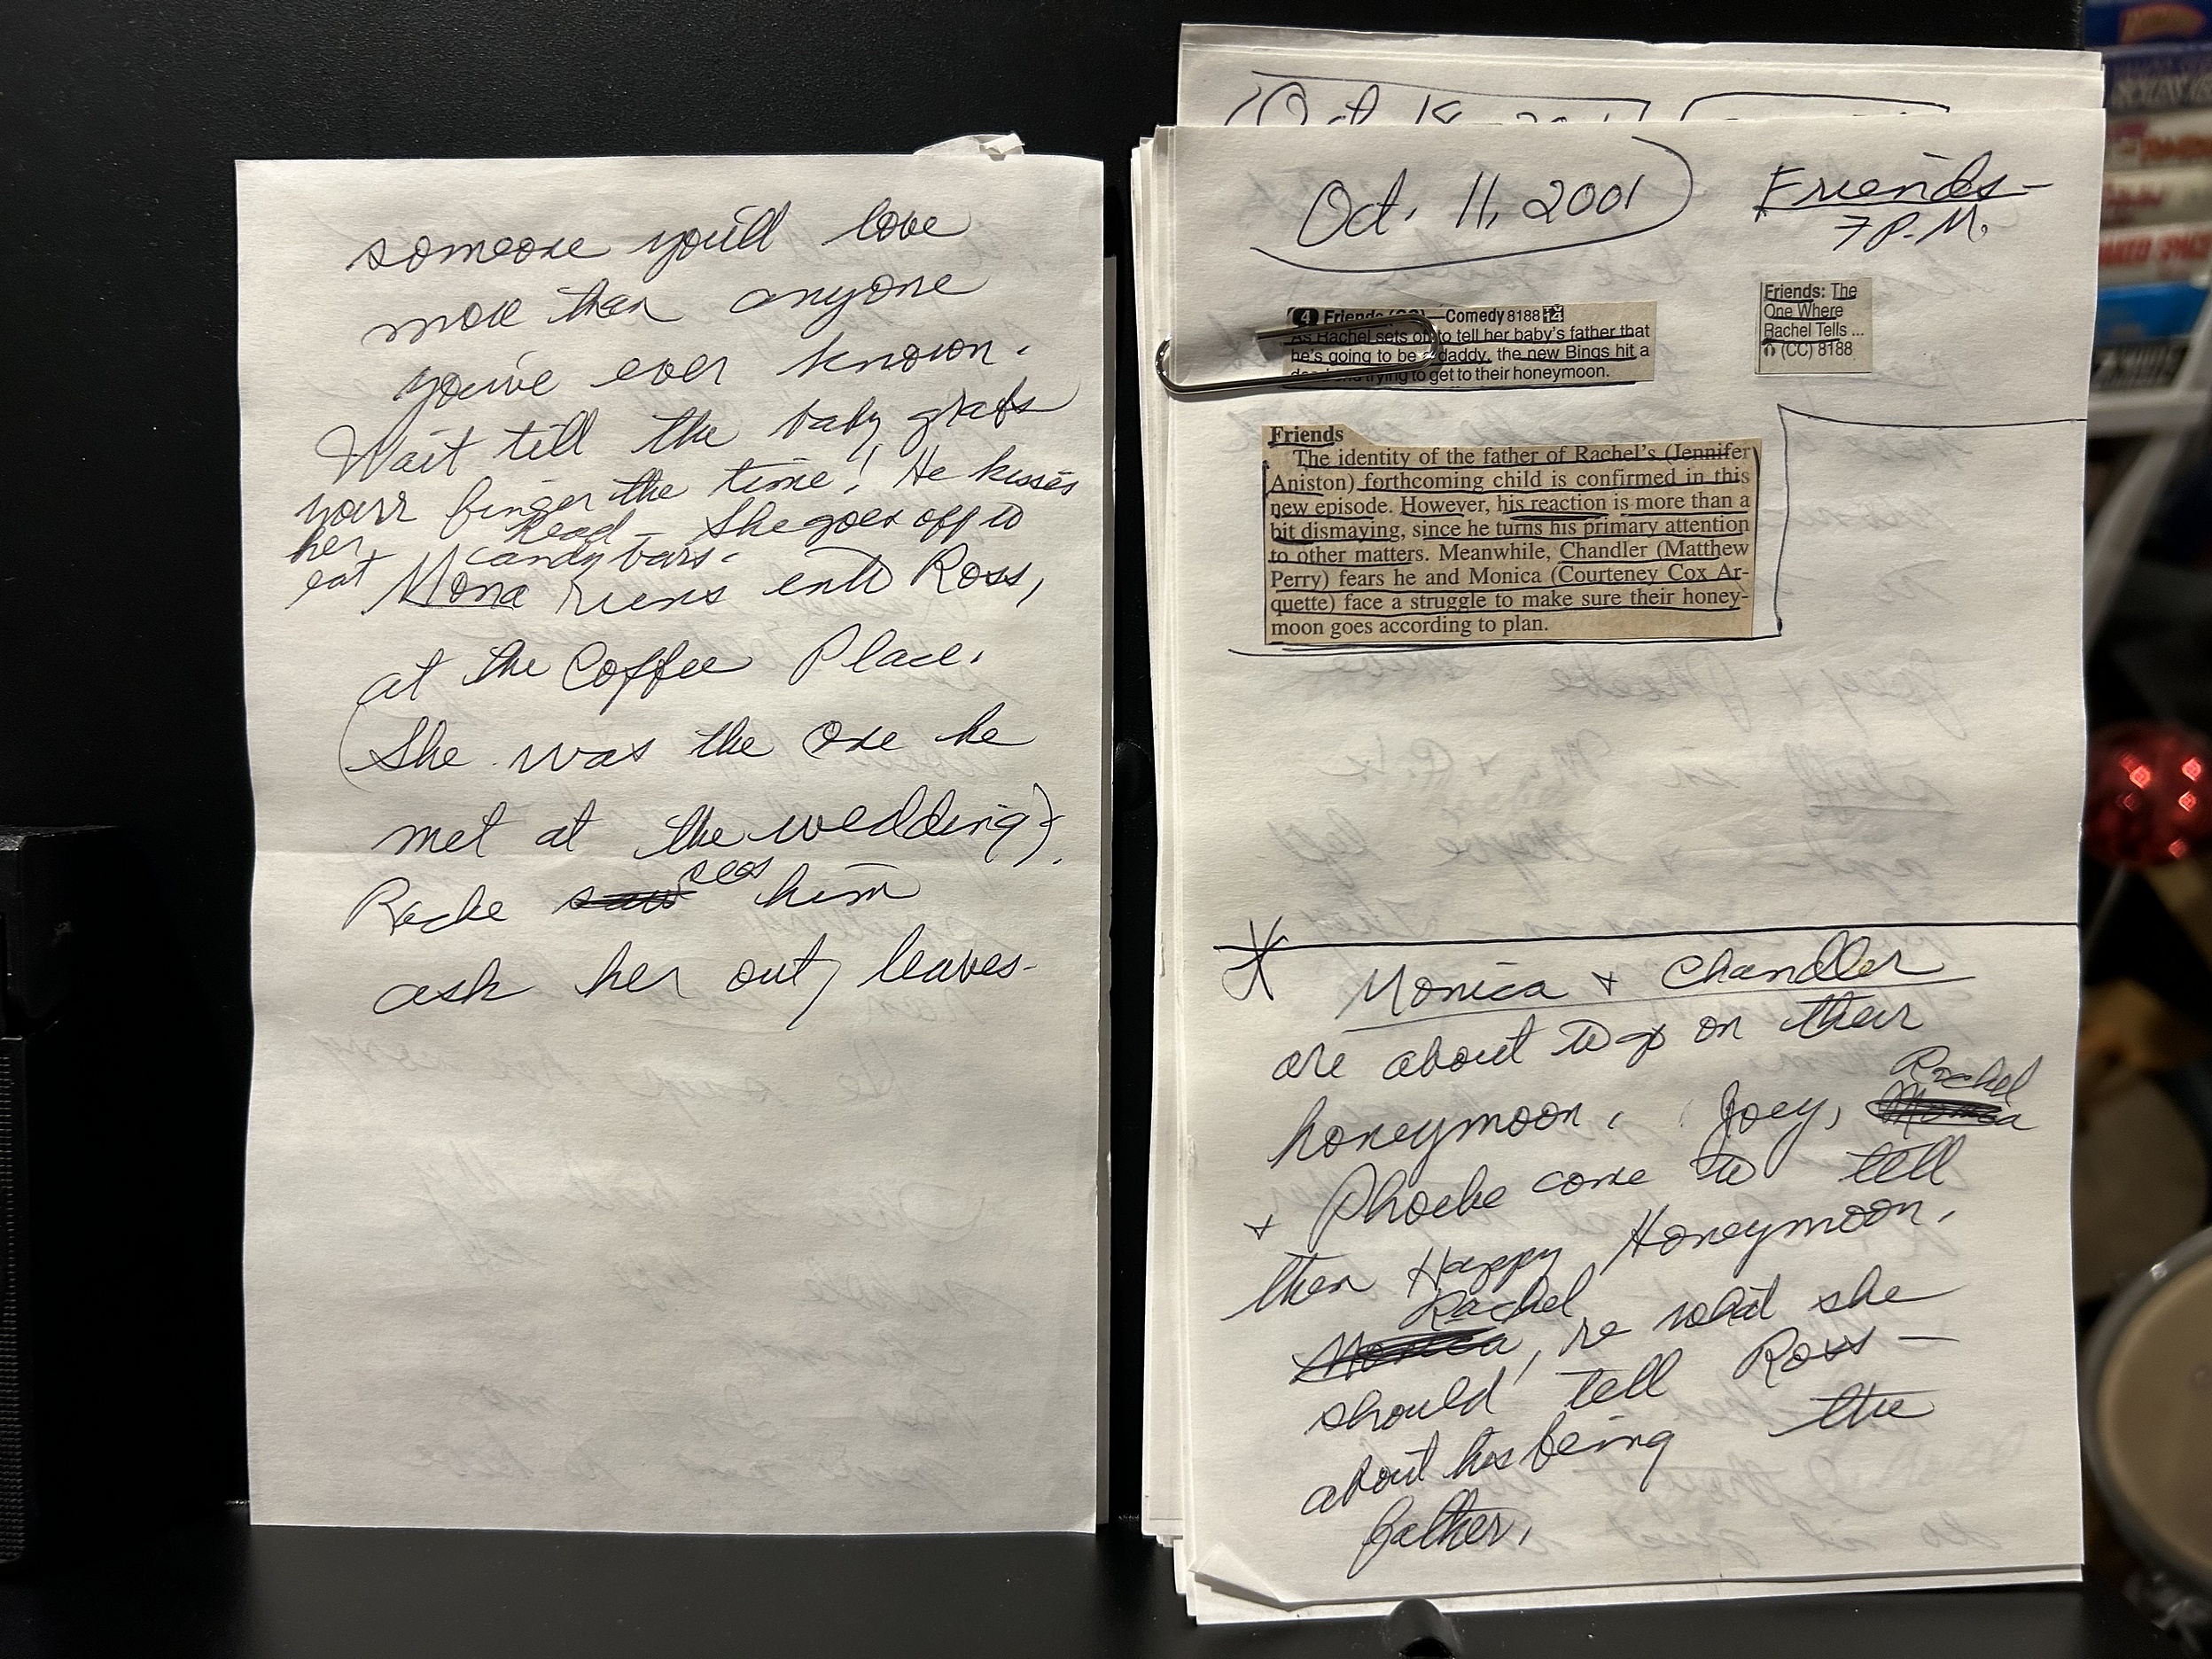 someone you'll love
more than anyone
you've ever known.
Wait till the baby grabs
your finger the time! He kisses
her head - She goes off to
eat candy bars.
Mona runs into Ross,
at the Coffee Place.
(She was the one he
met at the wedding).
Rache saw sees him
ask her out, leaves-
Oct. 11, 2001
Friends-
7 P.M.
4 Friends (CC)—Comedy 8188 14
As Rachel sets off to tell her baby's father that
he's going to be a daddy, the new Bings hit a
trying to get to their honeymoon.
Friends: The
One Where
Rachel Tells ...
(CC) 8188
Friends
The identity of the father of Rachel's (Jennifer
Aniston) forthcoming child is confirmed in this
new episode. However, his reaction is more than a
bit dismaying, since he turns his primary attention
to other matters. Meanwhile, Chandler (Matthew
Perry) fears he and Monica (Courteney Cox Ar-
quette) face a struggle to make sure their honey-
moon goes according to plan.
Monica + Chandler
are about to go on their
honeymoon. Joey, Monica Rachel
+ Phoebe come to tell
them Happy Honeymoon.
Monica Rachel, re what she
should tell Ross —
about his being the
father.